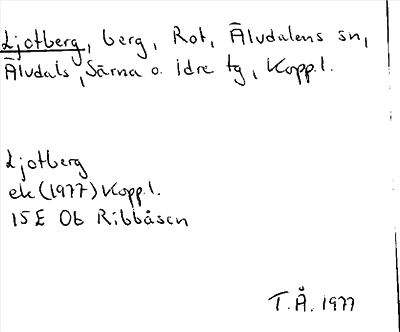 Ljotberg, berg, Rot, Älvdalens sn,
Älvdals, Särna o. Idre tg, Kopp.l.
Ljotberg
ek (1977) Kopp.l.
15E Ob Ribbåsen
T.Å. 1977